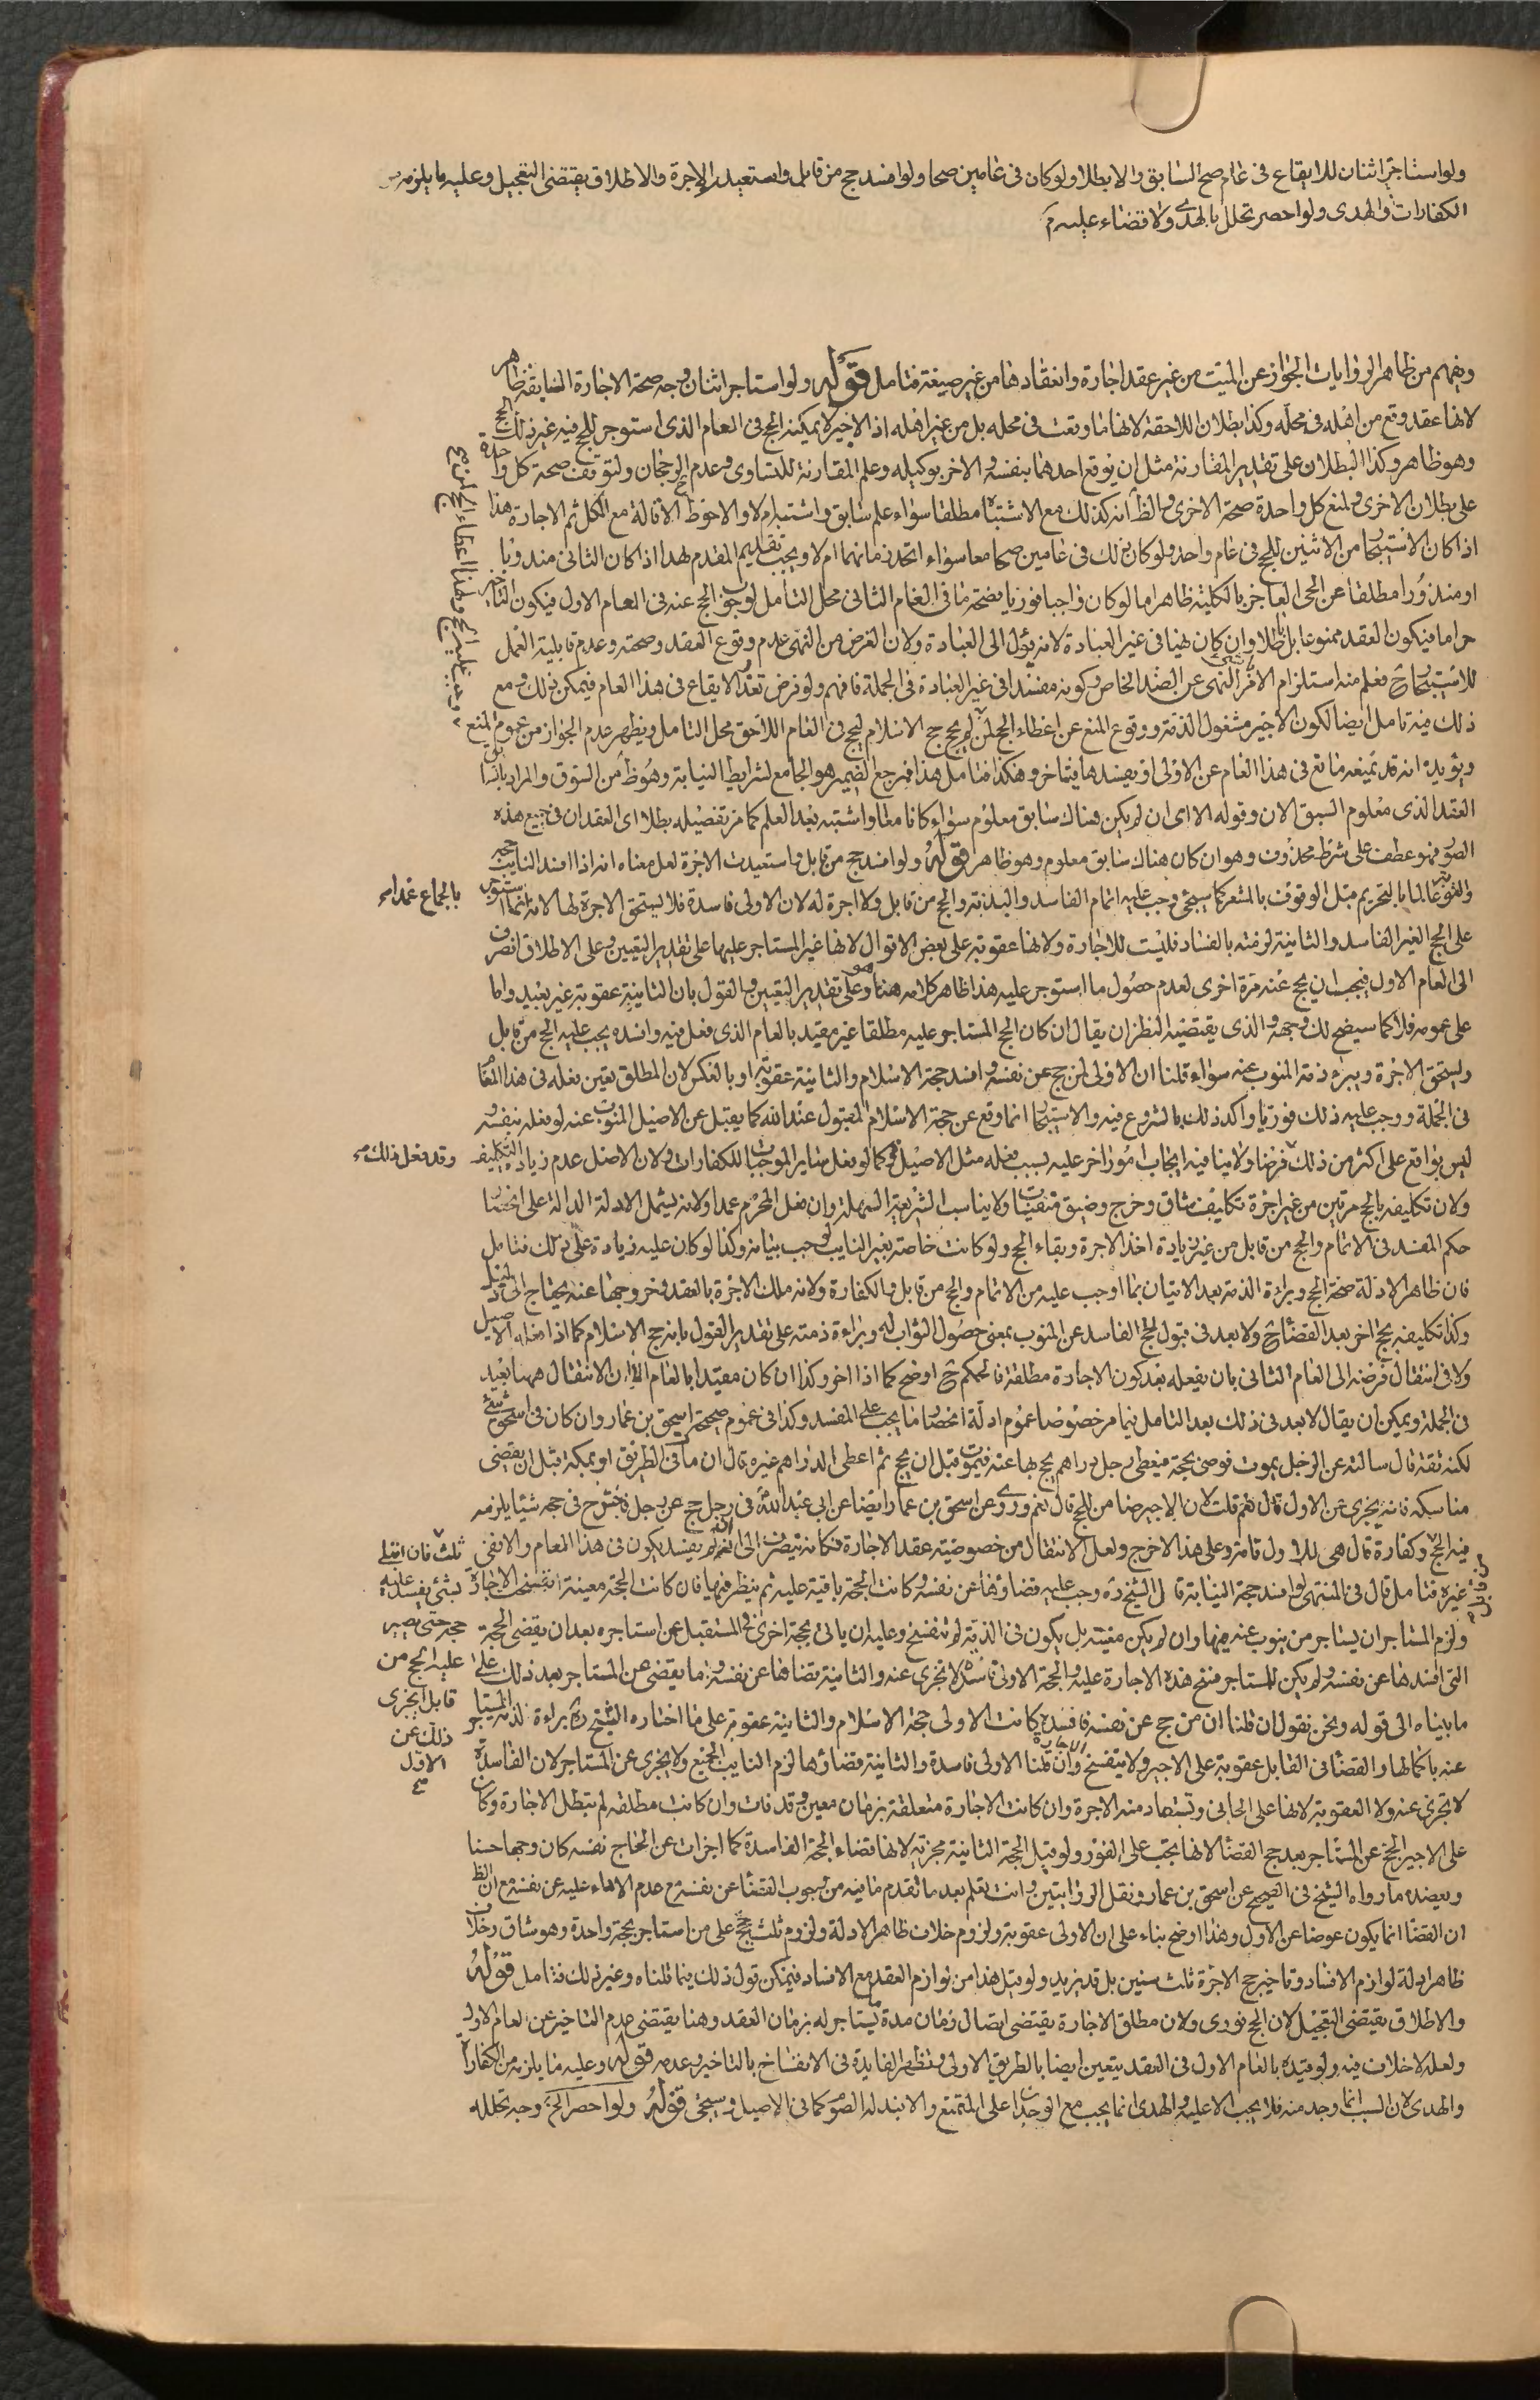 ولو استاجر اثنان للايقاع في عام صح السابق والا بطلا ولو كان في عامين صحا ولو افسد حج من قابل واستعيدت الاجرة والاطلاق يقتضي التعجيل وعليه ما يلزمه من
الكفارات والهدى ولو احصر تحلل بالهدى ولا قضاء عليه
ويفهم من ظاهر الروايات الجواز عن الميت من غير عقد اجارة وانعقادها من غير صيغة فتامل قوله ولو استاجر اثنان وجه صحة الاجارة السابقة ظاهر
لانها عقد وقع من اهله في محله وكذا بطلان اللاحقة لانها ما وقعت في محله بل من غير اهله اذ الاخير لا يمكنه الحج في العام الذي استوجر للحج فيه غير ذلك الحج
وهو ظاهر وكذا البطلان على تقدير المقارنة مثل ان يوقع احدهما بنفسه والاخر بوكيله وعلم المقارنة للتساوى وعدم الرجحان ولتوقف صحة كل واحدة
على بطلان الاخرى ولمنع كل واحدة صحة الاخرى والظ انه كذلك مع الاشتباه مطلقا سواء علم سابق واشتبه ام لا والاحوط الاقالة مع الكل ثم الاجارة هذا
اذا كان الاستيجار من الاثنين للحج في عام واحد ولو كان ذلك في عامين صحا معا سواء اتحد زمانهما ام لا ويجب تقديم المقدم لهذا اذا كان الثاني مندوبا
او منذورا مطلقا عن الحى العاجز بالكلية ظاهر اما لو كان واجبا فوريا فصحة ما في العام الثاني محل التامل لوجوب الحج عنه في العام الاول فيكون التاخير
حراما فيكون العقد ممنوعا بل باطلا وان كان نهيا في غير العبادة لانه يؤل الى العبادة ولان الغرض من النهى عدم وقوع العقد وصحته وعدم قابلية العمل
للاستيجار ح فعلم منه استلزام الامر النهى عن الضد الخاص وكونه مفسدا في غير العبادة في الجملة فافهم ولو فرض تعذر الايقاع في هذا العام فيمكن ذلك ومع
ذلك فيه تامل ايضا لكون الاجير مشغول الذمة ووقوع المنع عن اعطاء الحج لمن لم يحج حج الاسلام ليحج في العام اللاحق محل التامل ويظهر عدم الجواز من عموم المنع
ويؤيده انه قد يمنعه مانع في هذا العام عن الاولى او يفسدها فيتاخر وهكذا فتامل هذا فمرجع الضمير هو الجامع لشرايط النيابة وهو ظ من السوق والمراد بالسابق
العقد الذي معلوم السبق الان وقوله الا اى ان لم يكن هناك سابق معلوم سواء كانا معا او اشتبه بعد العلم كما مر تفصيله بطلا اى العقدان في جميع هذه
الصور فهو عطف على شرط محذوف وهو ان كان هناك سابق معلوم وهو ظاهر قوله ولو افسد حج من قابل واستعيدت الاجرة لعل معناه انه اذا افسد النايب حجه
والمنوب عالما بالتحريم قبل الوقوف بالمشعر كما سيجئ وجب عليه اتمام الفاسد والبدنة والحج من قابل ولا اجرة له لان الاولى فاسدة فلا يستحق الاجرة لها لانه انما استوجر
بالجماع عمدا
على الحج الغير الفاسد والثانية لزمته بالفساد فليست للاجارة ولانها عقوبة على بعض الاقوال لانها غير المستاجر عليها على تقدير التعيين وعلى الاطلاق انصرف
الى العام الاول فيجب ان يحج عنه مرة اخرى لعدم حصول ما استوجر عليه هذا ظاهر كلامه هنا وهو على تقدير التعيين والقول بان الثانية عقوبة غير بعيد واما
على عمومه فلا كما سيضح لك وجهه والذي يقتضيه النظر ان يقال ان كان الحج المستاجر عليه مطلقا غير مقيد بالعام الذي فعل فيه وافسده يجب عليه الحج من قابل
ويستحق الاجرة ويبرء ذمة المنوب عنه سواء قلنا ان الاولى لمن حج عن نفسه وافسد حجة الاسلام والثانية عقوبة او بالعكس لان المطلق تعين بفعله في هذا العام
في الجملة ووجب عليه ذلك فوريا واكد ذلك بالشروع فيه والاستيجار انما وقع عن حجة الاسلام المقبول عند الله كما يقبل عن الاصيل المنوب عنه لو فعله بنفسه
ليس بواقع على اكثر من ذلك فرضا ولا ينافيه ايجاب امور اخر عليه بسبب فعله مثل الاصيل كما لو فعل ساير الموجبات للكفارات ولان الاصل عدم زيادة التكليف
وقد فعل ذلك
ولان تكليفه بالحج مرتين من غير اجرة تكليف شاق وحرج وضيق منفيات ولا يناسب الشريعة السهلة وان فعل المحرم عمدا ولانه يشمل الادلة الدالة على انحصار
حكم المفسد في الاتمام والحج من قابل من غير زيادة اخذ الاجرة وبقاء الحج ولو كانت خاصة بغير النايب لوجب بيانه وكذا لو كان عليه زيادة على ذلك فتامل
فان ظاهر الادلة صحة الحج وبراءة الذمة بعد الاتيان بما اوجب عليه من الاتمام والحج من قابل والكفارة ولانه ملك الاجرة بالعقد فخروجها عنه يحتاج الى دليل
وكذا تكليفه بحج اخر بعد القضا ح ولا بعد في قبول الحج الفاسد عن المنوب بمعنى حصول الثواب له وبراءة ذمته على تقدير القول بانه حج الاسلام كما اذا فعله الاصيل
ولا في انتقال فرضه الى العام الثاني بان يفعله بعد كون الاجارة مطلقة فالحكم ح اوضح كما اذا اخر وكذا ان كان مقيدا بالعام الا ان الانتقال ههنا بعيد
في الجملة ويمكن ان يقال لا بعد في ذلك بعد التامل فيما مر خصوصا عموم ادلة انحصار ما يجب على المفسد وكذا في عموم صحيحة اسحق بن عمار وان كان في اسحق شئ
لكنه ثقة قال سالته عن الرجل يموت فوصى بحجة فيعطى رجل دراهم يحج بها عنه فيموت قبل ان يحج ثم اعطى الدراهم غيره قال ان مات في الطريق او بمكة قبل ان يقضى
مناسكه فانه يجزى عن الاول قال نعم قلت لان الاجير ضامن للحج قال نعم وروى عن اسحق بن عمار ايضا عن ابى عبد الله في رجل حج عن رجل فاجترح في حجه شيئا يلزمه
فيه الحج وكفارة قال هى للاول تامة وعلى هذا الاخرج ولعل الانتقال من خصوصية عقد الاجارة فكانه ينصرف الى انه لم يفسد يكون في هذا العام والا ففى
قلت فان ابتلى بشئ يفسد عليه حجه حتى يصير عليه الحج من قابل ايجزى ذلك عن الاول
غيره فتامل قال في المنتهى لو افسد حجة النيابة قال الشيخ ره وجب عليه قضاؤها عن نفسه وكانت الحجة باقية عليه ثم ينظر فيها فان كانت الحجة معينة انفسخت الاجارة
ولزم المستاجر ان يستاجر من ينوب عنه فيها وان لم يكن معينة بل يكون في الذمة لم تنفسخ وعليه ان ياتى بحجة اخرى في المستقبل عن استاجره بعد ان يقضى الحجة
التى افسدها عن نفسه ولم يكن للمستاجر فسخ هذه الاجارة عليه والحجة الاولى فاسدة لا تجزى عنه والثانية قضاها عن نفسه وانما يقضى عن المستاجر بعد ذلك على
ما بيناه الى قوله ونحن نقول ان قلنا ان من حج عن نفسه فافسده كانت الاولى حجة الاسلام والثانية عقوبة على ما اختاره الشيخ ره براءة ذمة المستاجر
عنه باكمالها والقضا في القابل عقوبة على الاجير ولا ينفسخ وان قلنا الاولى فاسدة والثانية قضاؤها لزم النايب الجميع ولا يجزى عن المستاجر لان الفاسدة
لا تجزى عنه ولا العقوبة لانها على الجانى وتستعاد منه الاجرة وان كانت الاجارة متعلقة بزمان معين وقد فات وان كانت مطلقة لم تبطل الاجارة وكان
على الاجير الحج عن المستاجر بعد حج القضا لانها يجب على الفور ولو قيل الحجة الثانية مجزية لانها قضاء الحجة الفاسدة كما اجزات عن الحاج نفسه كان وجها حسنا
ويعضده ما رواه الشيخ في الصحيح عن اسحق بن عمار ونقل الروايتين وانت تعلم بعد ما تقدم ما فيه من وجوب القضا عن نفسه مع عدم الافساء عليه عن نفسه مع ان الظ
ان القضا انما يكون عوضا عن الاول وهذا اوضح بناء على ان الاولى عقوبة ولزوم خلاف ظاهر الادلة ولزوم ثلث حجج على من استاجر بحجة واحدة وهو شاق وخلاف
ظاهر ادلة لوازم الافساد وتاخير حج الاجرة ثلث سنين بل قد يزيد ولو قيل هذا من لوازم العقد مع الافساد فيمكن قول ذلك فيما قلناه وغير ذلك فتامل قوله
والاطلاق يقتضى التعجيل لان الحج فورى ولان مطلق الاجارة يقتضى اتصال زمان مدة يستاجر له بزمان العقد وهنا يقتضى عدم التاخير عن العام الاول
ولعله لا خلاف فيه ولو قيده بالعام الاول في العقد يتعين ايضا بالطريق الاولى وتظهر الفايدة في الانفساخ بالتاخير وعدمه قوله وعليه ما يلزمه من الكفارات
والهدى لان السبب انما وجد منه فلا يجب الا عليه والهدى انما يجب مع الوجدان على المتمتع والا بدله الصوم كما في الاصيل وسيجئ قوله ولو احصر الخ وجه تحلله